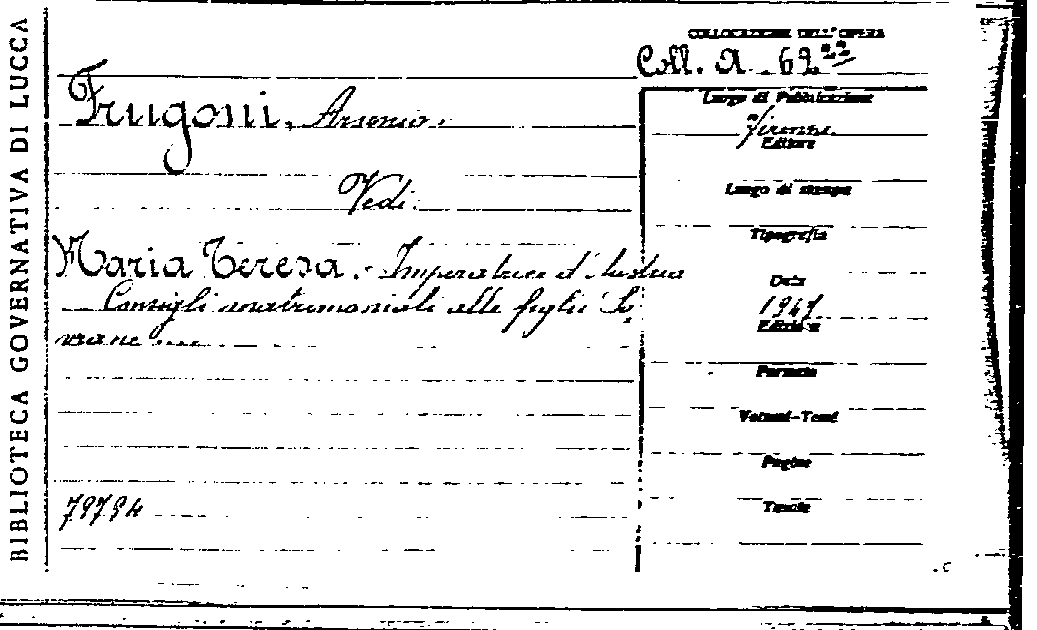 BIBLIOTECA GOVERNATIVA DI LUCCA
COLLOCAZIONE DELL'OPERA
Coll. A. 62 22
Frugoni, Arsenio.
Vedi.
Maria Teresa. - Imperatrice d'Austria
Consigli matrimoniali alle figlie So
vrane ....
79794
Luogo di Pubblicazione
Firenze.
Editore
Luogo di stampa
Tipografia
Data
1947
Edizione
Formato
Volumi-Tomi
Pagine
Tavole